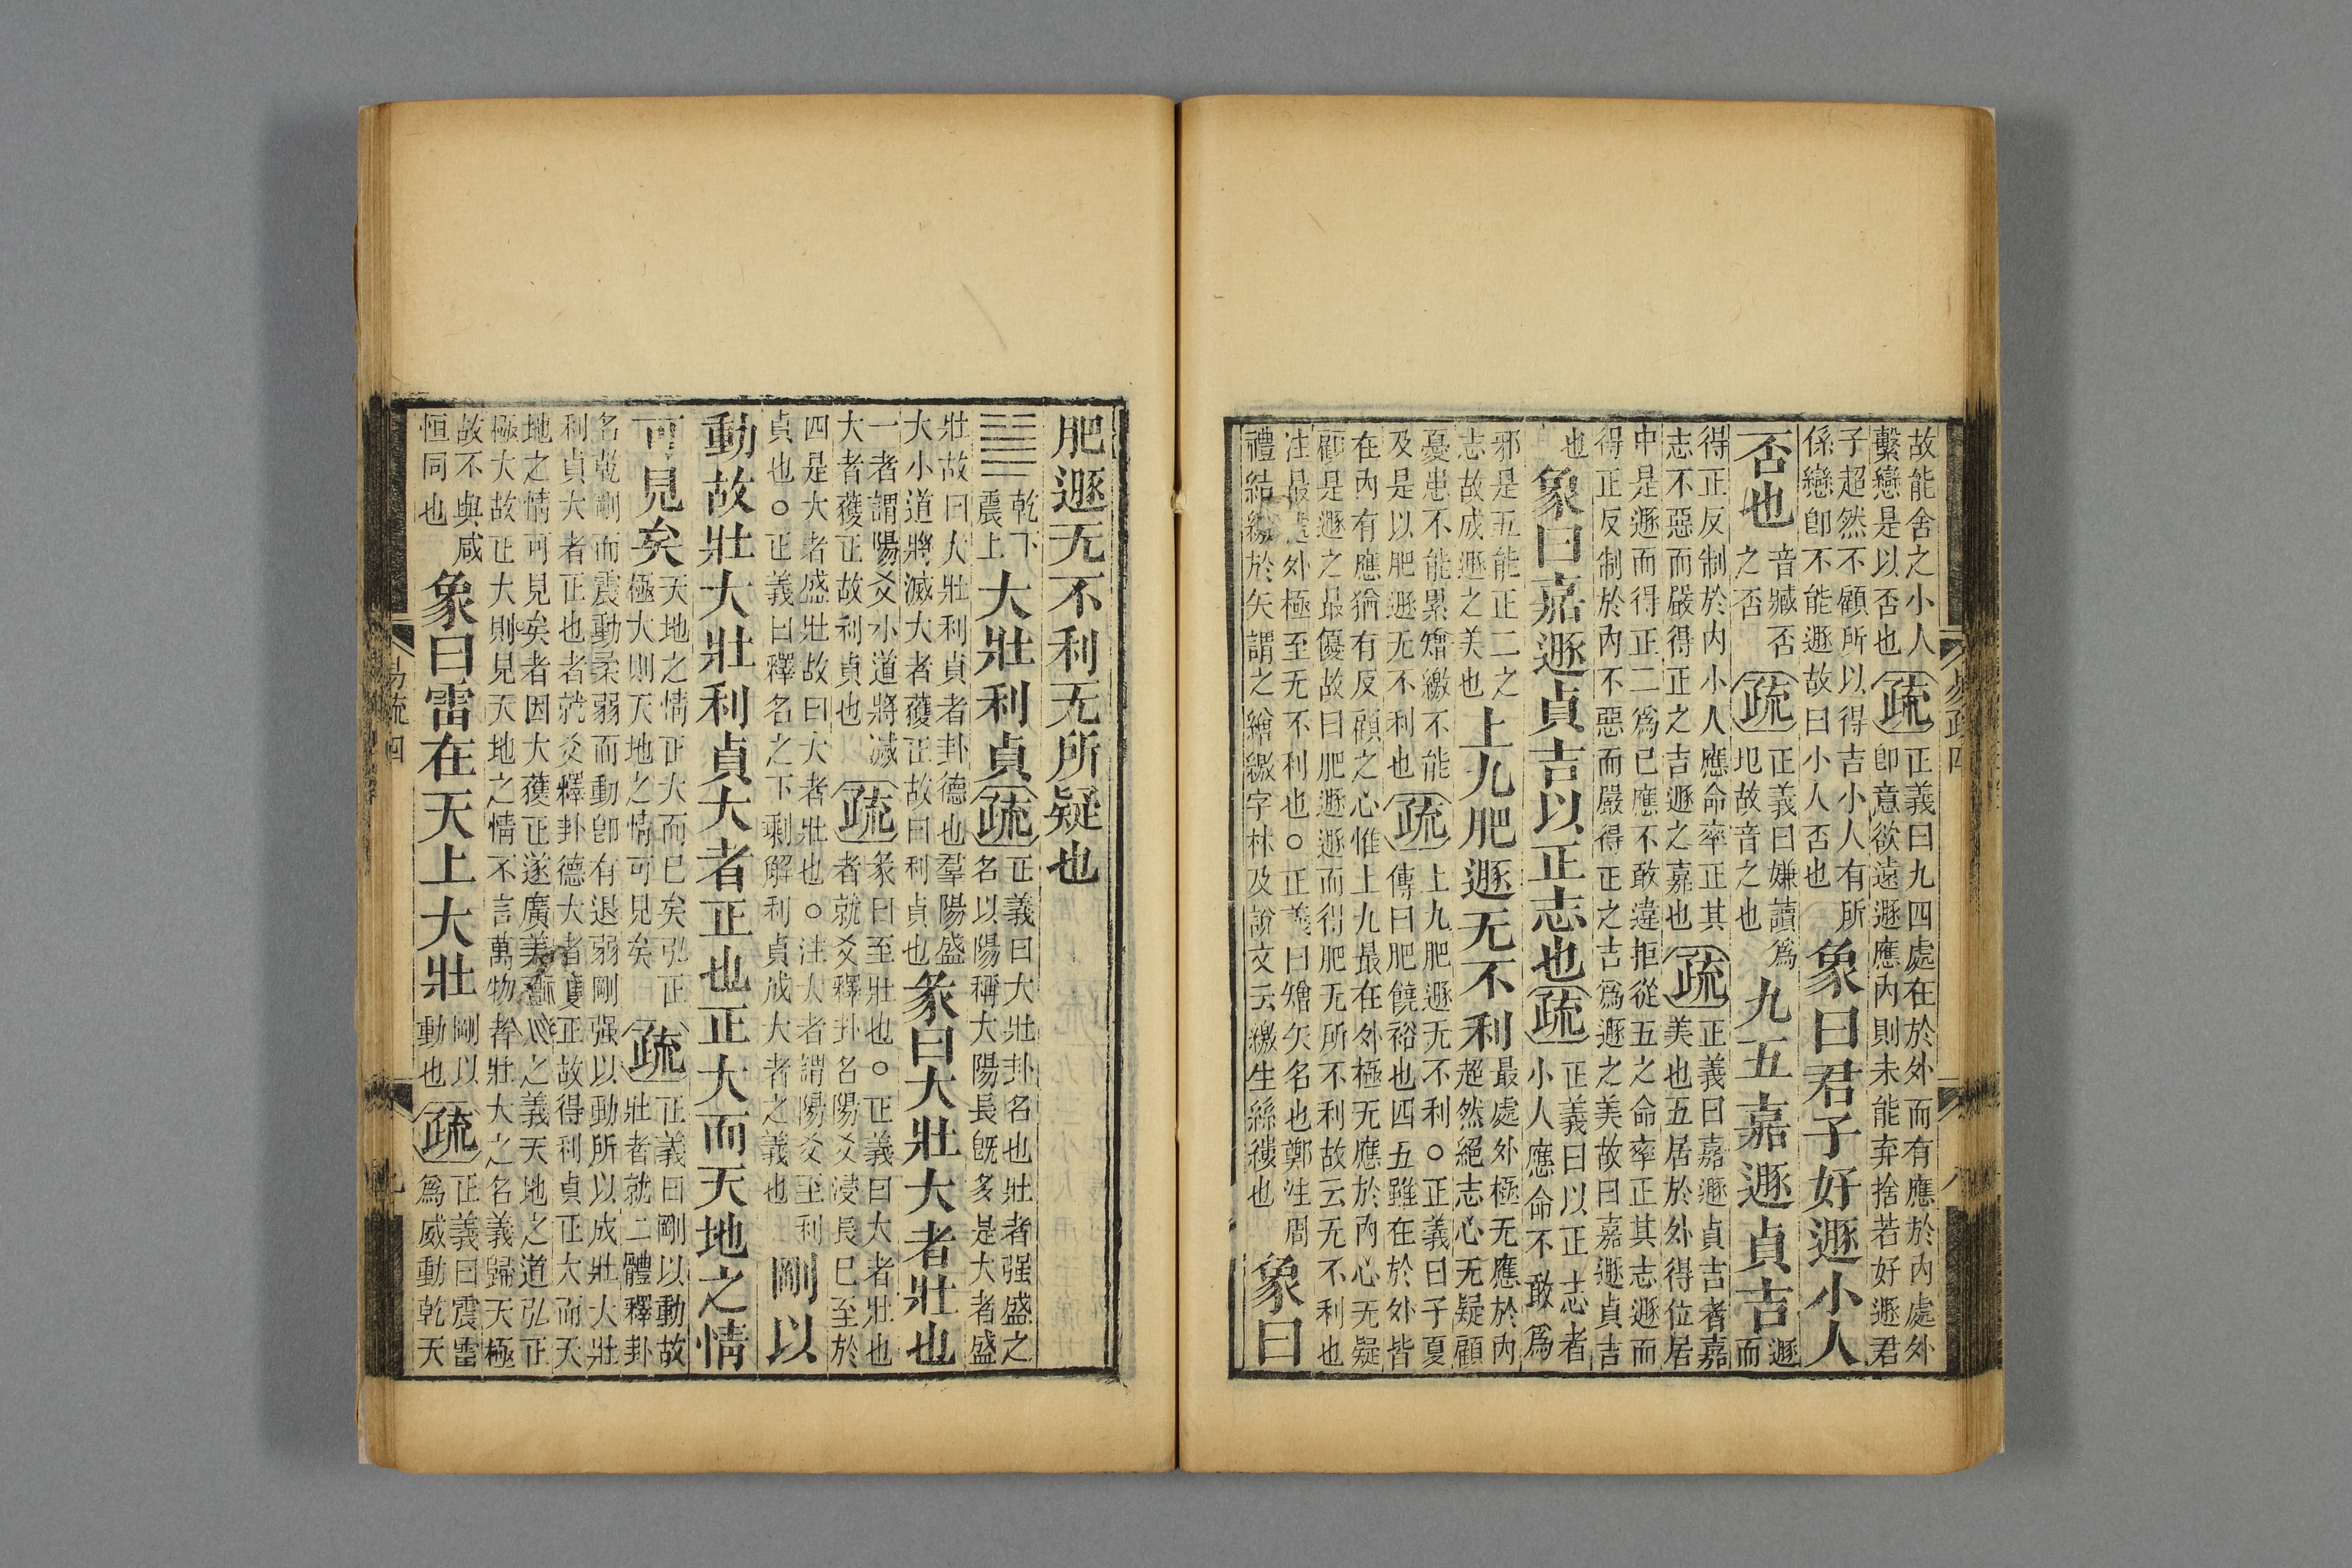 故能舍之小人
繫戀是以否也
疏
正義曰九四處在於外而有應於内處外
卽意欲遠遯應内則未能弃捨若好遯君
子超然不顧所以得吉小人有所
係戀卽不能遯故曰小人否也
象曰君子好遯小人
否也
音臧否
之否
疏
正義曰嫌讀爲
圯故音之也
九五嘉遯貞吉
遯
而
得正反制於内小人應命率正其
志不惡而嚴得正之吉遯之嘉也
疏
正義曰嘉遯貞吉者嘉
美也五居於外得位居
中是遯而得正二爲已應不敢違拒從五之命率正其志遯而
得正反制於内不惡而嚴得正之吉爲遯之美故曰嘉遯貞吉
也
象曰嘉遯貞吉以正志也
疏
正義曰以正志者
小人應命不敢爲
邪是五能正二之
志故成遯之美也
上九肥遯无不利
最處外極无應於内
超然絕志心无疑顧
憂患不能累矰繳不能
及是以肥遯无不利也
疏
上九肥遯无不利○正義曰子夏
傳曰肥饒裕也四五雖在於外皆
在内有應猶有反顧之心惟上九最在外極无應於内心无疑
顧是遯之最優故曰肥遯遯而得肥无所不利故云无不利也
注最處外極至无不利也○正義曰矰矢名也鄭注周
禮結繳於矢謂之矰繳字林及說文云繳生絲縷也
象曰
易疏四
八
肥遯无不利无所疑也
乾下
震上
大壯利貞
疏
正義曰大壯卦名也壯者强盛之
名以陽稱大陽長旣多是大者盛
壯故曰大壯利貞者卦德也羣陽盛
大小道將滅大者獲正故曰利貞也
彖曰大壯大者壯也
一者謂陽爻小道將滅
大者獲正故利貞也
疏
彖曰至壯也○正義曰大者壯也
者就爻釋卦名陽爻浸長已至於
四是大者盛壯故曰大者壯也○注大者謂陽爻至利
貞也○正義曰釋名之下剩解利貞成大者之義也
剛以
動故壯大壯利貞大者正也正大而天地之情
可見矣
天地之情正大而已矣弘正
極大則天地之情可見矣
疏
正義曰剛以動故
壯者就二體釋卦
名乾剛而震動柔弱而動卽有退弱剛强以動所以成壯大壯
利貞大者正也者就爻釋卦德大者獲正故得利貞正大而天
地之情可見矣者因大獲正遂廣美之義天地之道弘正
極大故正大則見天地之情不言萬物者壯大之名義歸天極
故不與咸
恒同也
象曰雷在天上大壯
剛以
動也
疏
正義曰震雷
爲威動乾天
易疏四
九